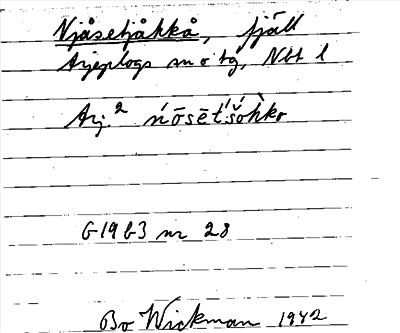 Njåsetjåkkå, fjäll
Arjeplogs sn o tg, Nbt l
Arj.² ńōsētš́ŏh̀kɒ
G1963 nr 28
Bo Wickman 1942